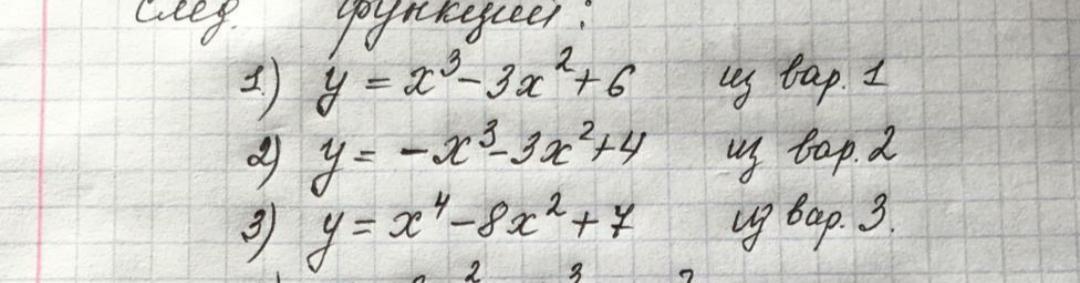 след. функций:
1) y = x³ - 3x² + 6 из вар. 1
2) y = -x³ - 3x² + 4 из вар. 2
3) y = x⁴ - 8x² + 7 из вар. 3.